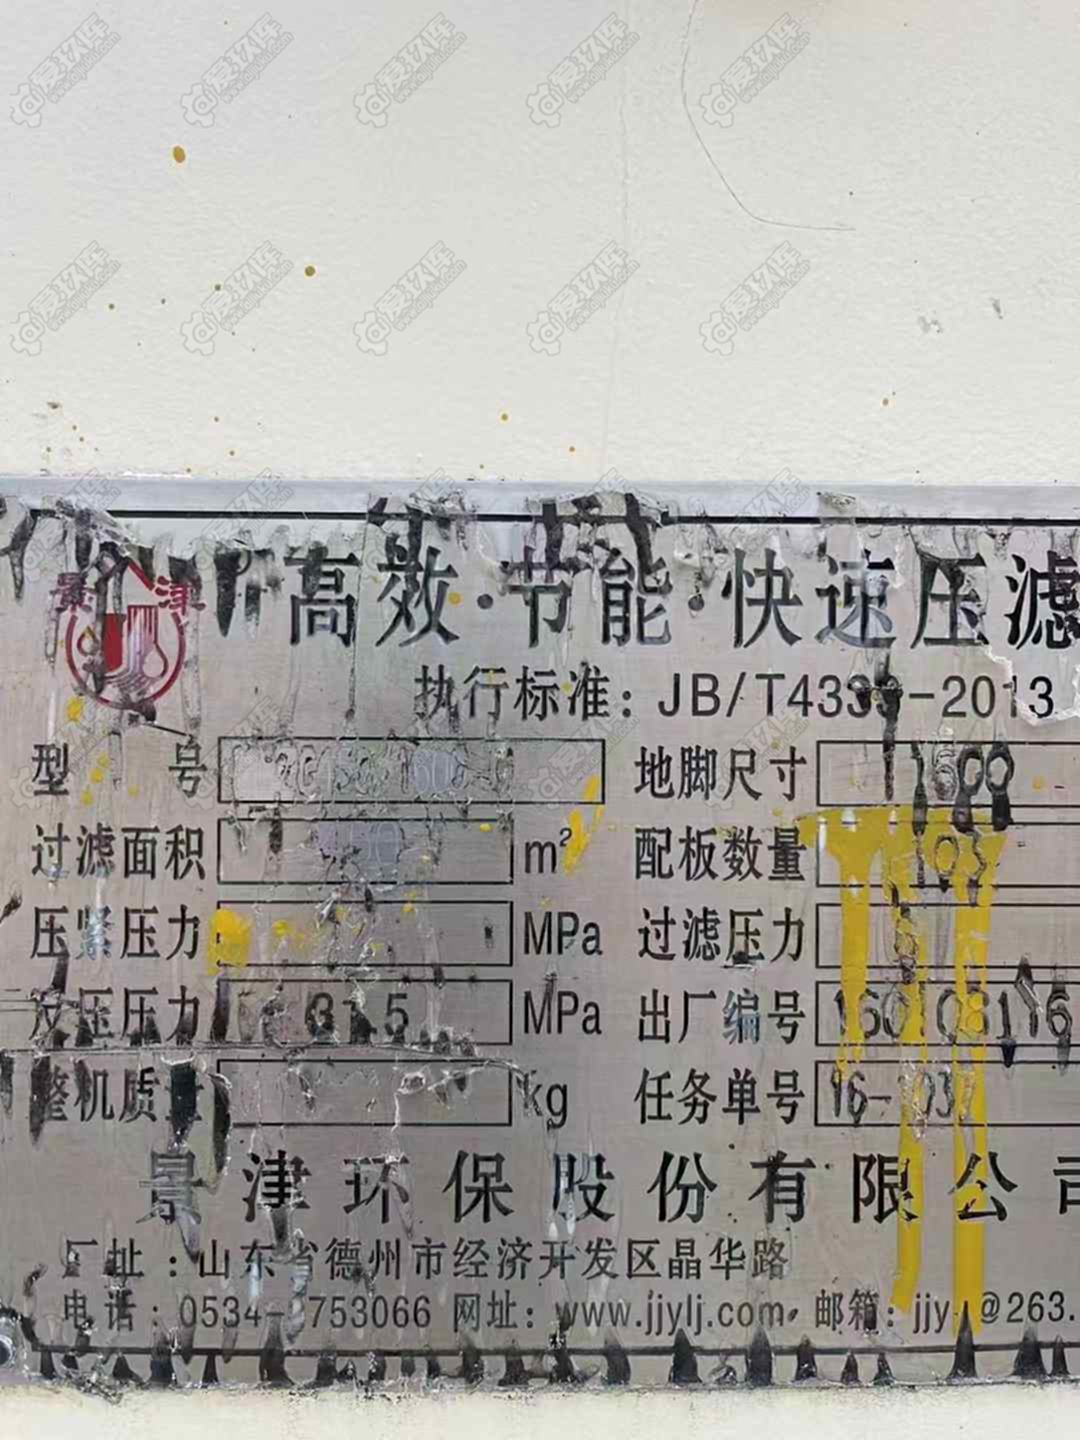 景津
高效·节能·快速压滤
执行标准：JB/T4333-2013
型号 地脚尺寸 1600
过滤面积 m² 配板数量 103
压紧压力 MPa 过滤压力
反压压力 31.5 MPa 出厂编号
整机质量 kg 任务单号 16-
景津环保股份有限公司
厂址：山东省德州市经济开发区晶华路
电话：0534- 753066 网址：www.jjylj.com 邮箱：jjy @263.
爱玖库